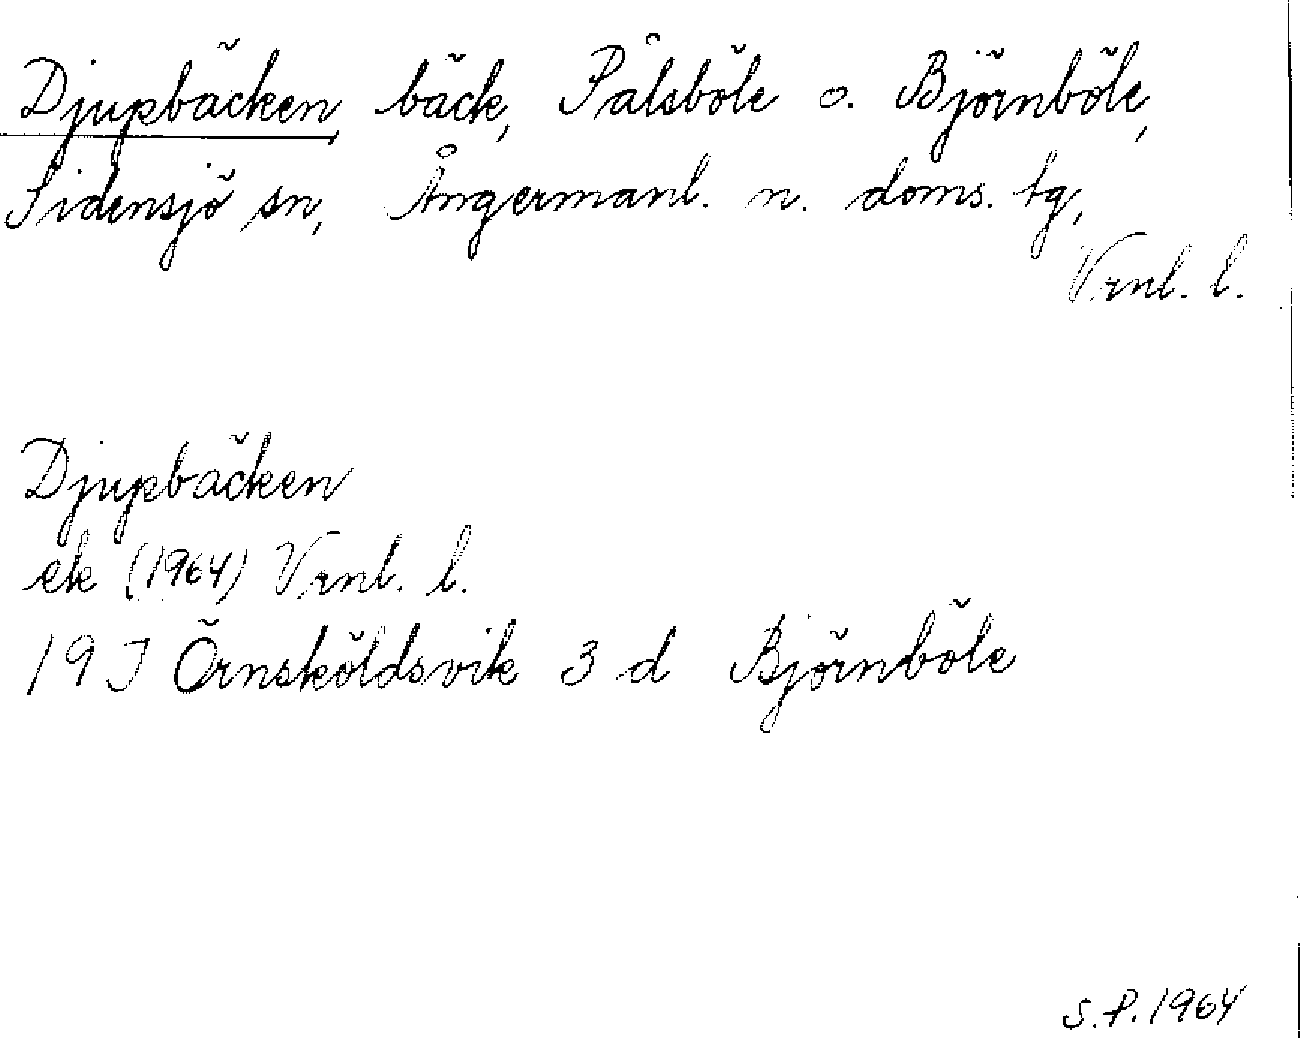 Djupbäcken, bäck, Pålsböle o. Björnböle,
Sidensjö sn, Ångermanl. n. doms. tg,
Vrnl. l.
Djupbäcken
ek (1964) Vrnl. l.
19 J Örnsköldsvik 3 d Björnböle
S.P. 1964